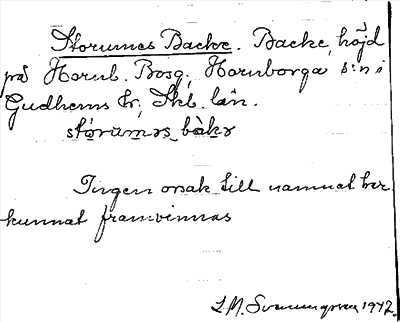 Storumes Backe. Backe, höjd
på Hornb. Bosg, Hornborga s:n i
Gudhems hr, Skb. län.
storumǝs bàkǝ
Ingen orsak till namnet har
kunnat framvinnas
L. M. Svennungsson 1942.